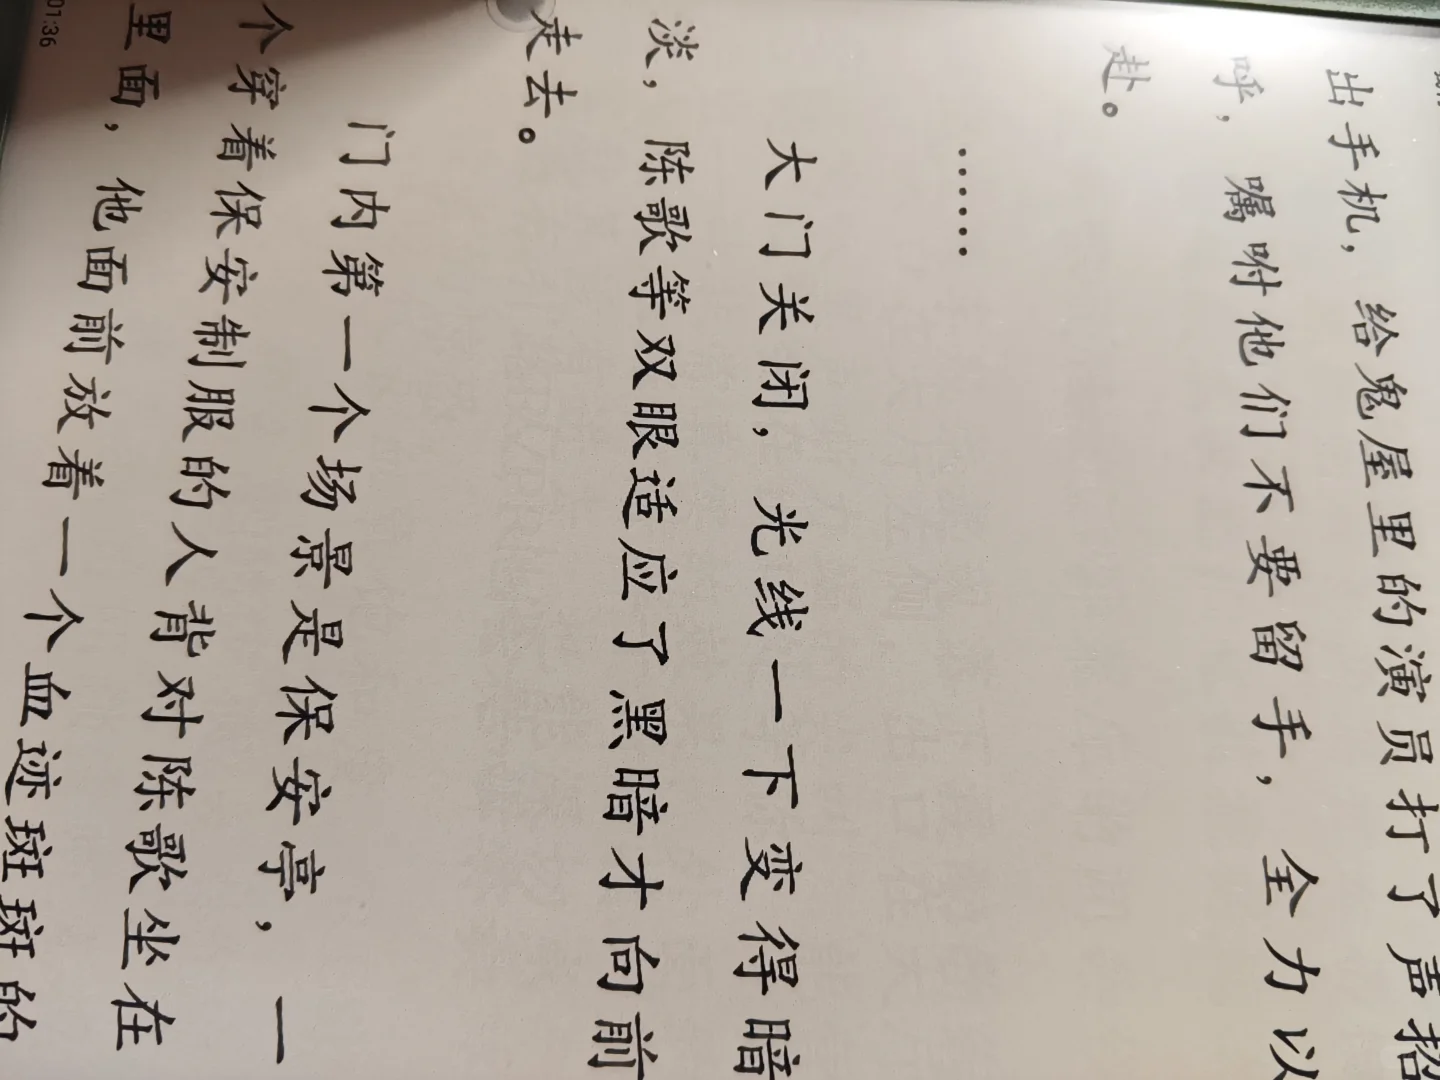 出手机，给鬼屋里的演员打了声招
呼，嘱咐他们不要留手，全力以
赴。
……
大门关闭，光线一下变得暗
淡，陈歌等双眼适应了黑暗才向前
走去。
门内第一个场景是保安亭，一
个穿着保安制服的人背对陈歌坐在
里面，他面前放着一个血迹斑斑的
01:36